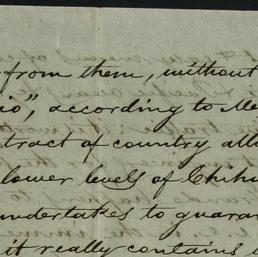 from them, without
io", according to Me
tract of country all
lower levels of Chihu
undertakes to guaran
it really contains